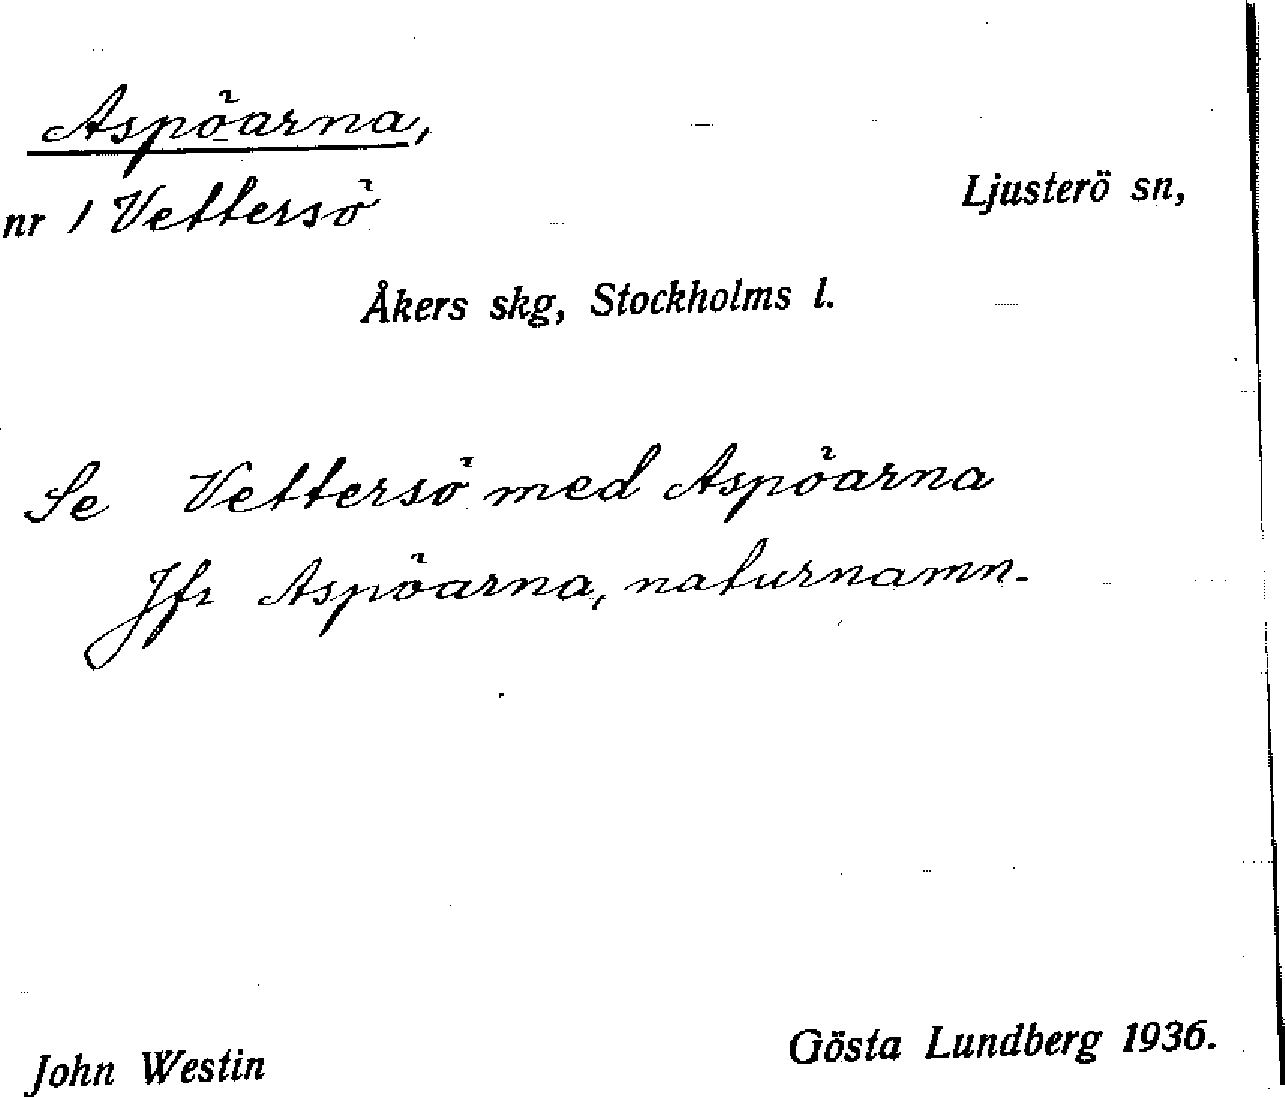 Aspöarna,
nr 1 Vettersö Ljusterö sn,
Åkers skg, Stockholms l.
Se Vettersö med Aspöarna
Jfr Aspöarna, naturnamn.
John Westin Gösta Lundberg 1936.